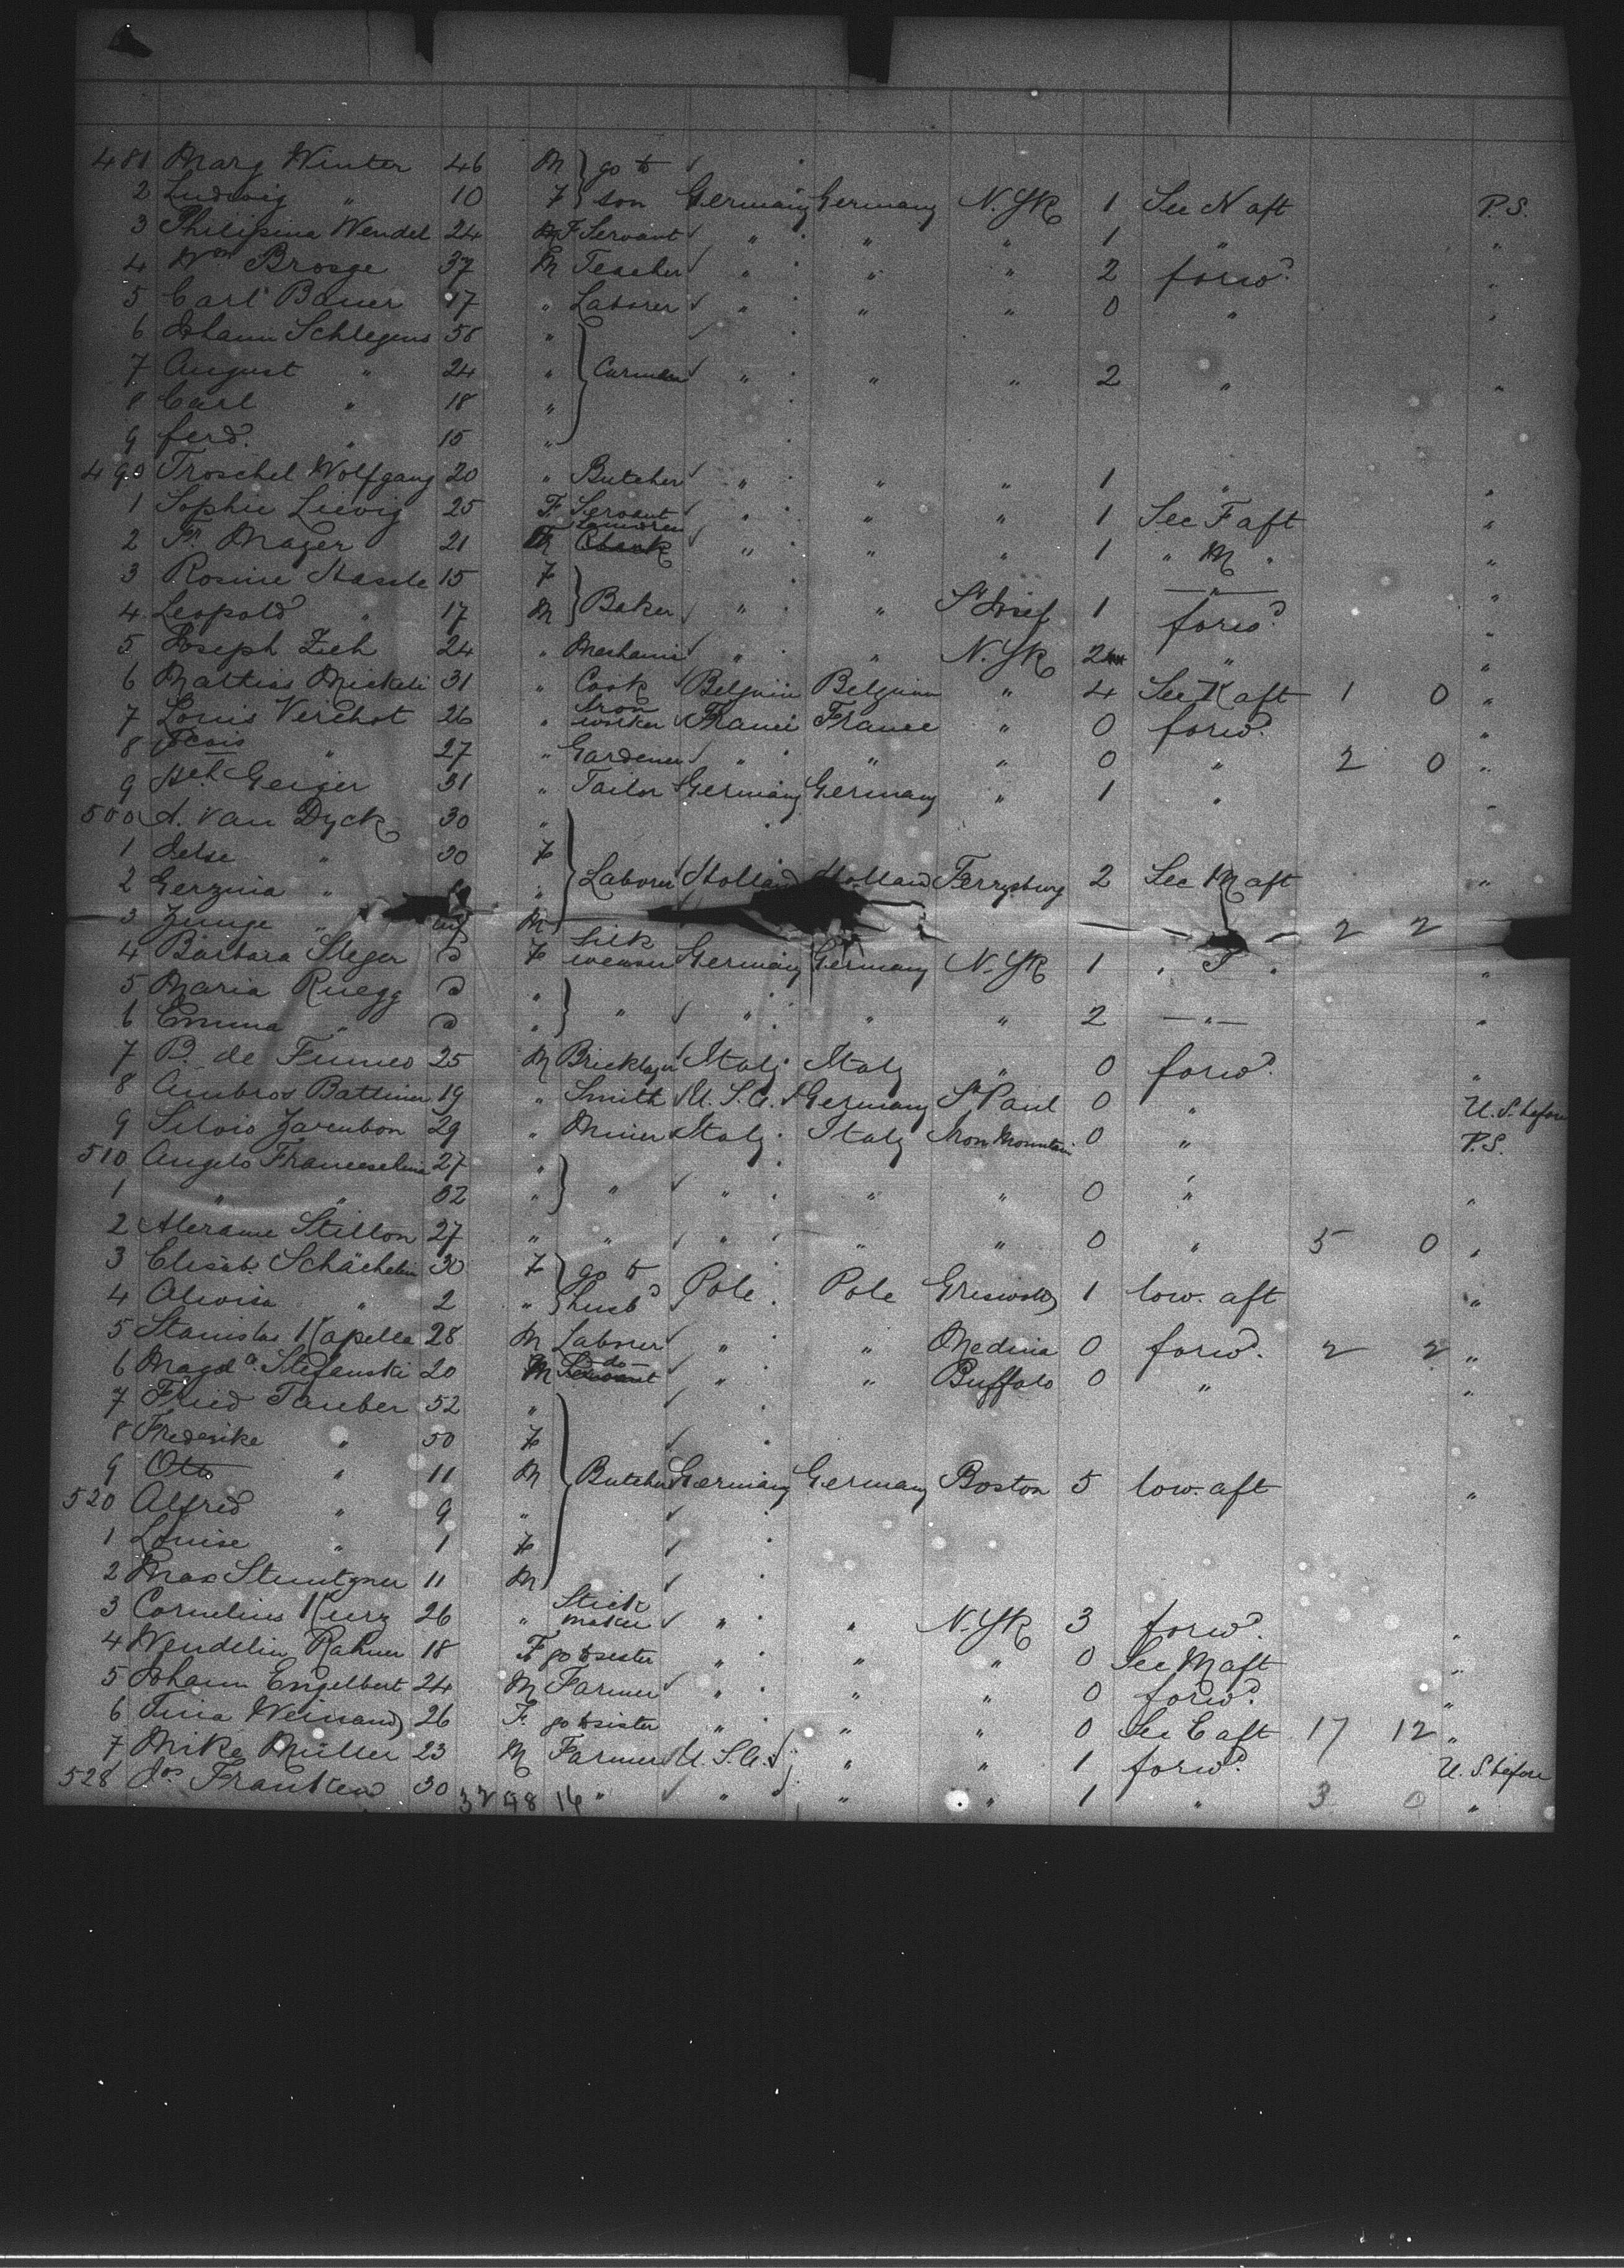 481 Marg Winter 46 M } go to
2 Ludwig " 10 F } son Germany Germany N. YK 1 Sec N aft P.S.
3 Philipina Wendel 24 F Servant " " " 1 " "
4 Wm Brosge 37 M Teacher " " " 2 forwd. "
5 Carl Bauer 17 " Laborer " " " 0 " "
6 Johann Schlegens 58 "
7 August " 24 " } Carmen " " " 2 " "
8 Carl " 18 "
9 ferd. " 15 "
490 Troschel Wolfgang 20 " Butcher " " " 1 " "
1 Sophie 25 F. Servant " " " 1 Sec F aft "
2 Fr. Mayer 21 M " " " 1 " M " "
3 Rosine 15 F —"— "
4 Leopold " 17 M } Baker " " St Josef 1 forwd. "
5 Joseph Zieh 24 " Mechanic " " N. YK 2 " "
6 Mattias Mickeli 31 " Cook Belgium Belgium " 4 Sec K aft 1 0 "
7 Louis Verchot 26 " Iron worker France France " 0 forwd. "
8 " 27 " Gardener " " " 0 " 2 0 "
9 Geiger 31 " Tailor Germany Germany " 1 " "
500 A. van Dyck 30 "
1 Jelse " 30 F
2 Gerzina " " } Laborer Holland Holland Ferrysburg 2 Sec M aft "
3 " M 2 2
4 Barbara Steger F Silk weaver Germany Germany N. YK 1 " F " "
5 Maria Ruegg "
6 Emma " " } " " " " 2 —"— "
7 B. de Fumeo 25 M Bricklayer Italy Italy " 0 forwd. "
8 Ambros Battiner 19 " Smith U.S.A. Germany St Paul 0 " U.S. before
9 Silvio Zarenbon 29 " Miner Italy Italy Iron Mountain 0 " P.S.
510 Angelo Franceschina 27 "
1 " " 32 " } " " " " 0 " "
2 Stillon 27 " " " " " 0 " 5 0 "
3 Elisab. Schächelin 30 F } go to
4 Aloisia " 2 " husbd Pole Pole Griswold 1 low. aft "
5 Stanislas Kapella 28 M Laborer " " Medina 0 forwd. 2 2 "
6 Magda. Stefanski 20 M —do— " " Buffalo 0 " "
7 Fried Tauber 52 "
8 Frederike " 50 F
9 Otto " 11 M } Butcher Germany Germany Boston 5 low. aft "
520 Alfred " 9 "
1 Louise " 1 F
2 Max Stuntzner 11 M
3 Cornelius Kurz 26 " Stick maker " " N. YK 3 forwd. "
4 Wendelin Rahner 18 F go to sister " " " 0 Sec M aft "
5 Johann Engelbert 24 M Farmer " " " 0 forwd. "
6 Tina Weinand 26 F. go to sister " " " 0 Sec E aft 17 12 "
7 Mike Müller 23 M Farmer U.S.A. " " 1 forwd. U.S. before
528 Jos Franken 30 32 98 16 " " " " 1 " 3 0 "